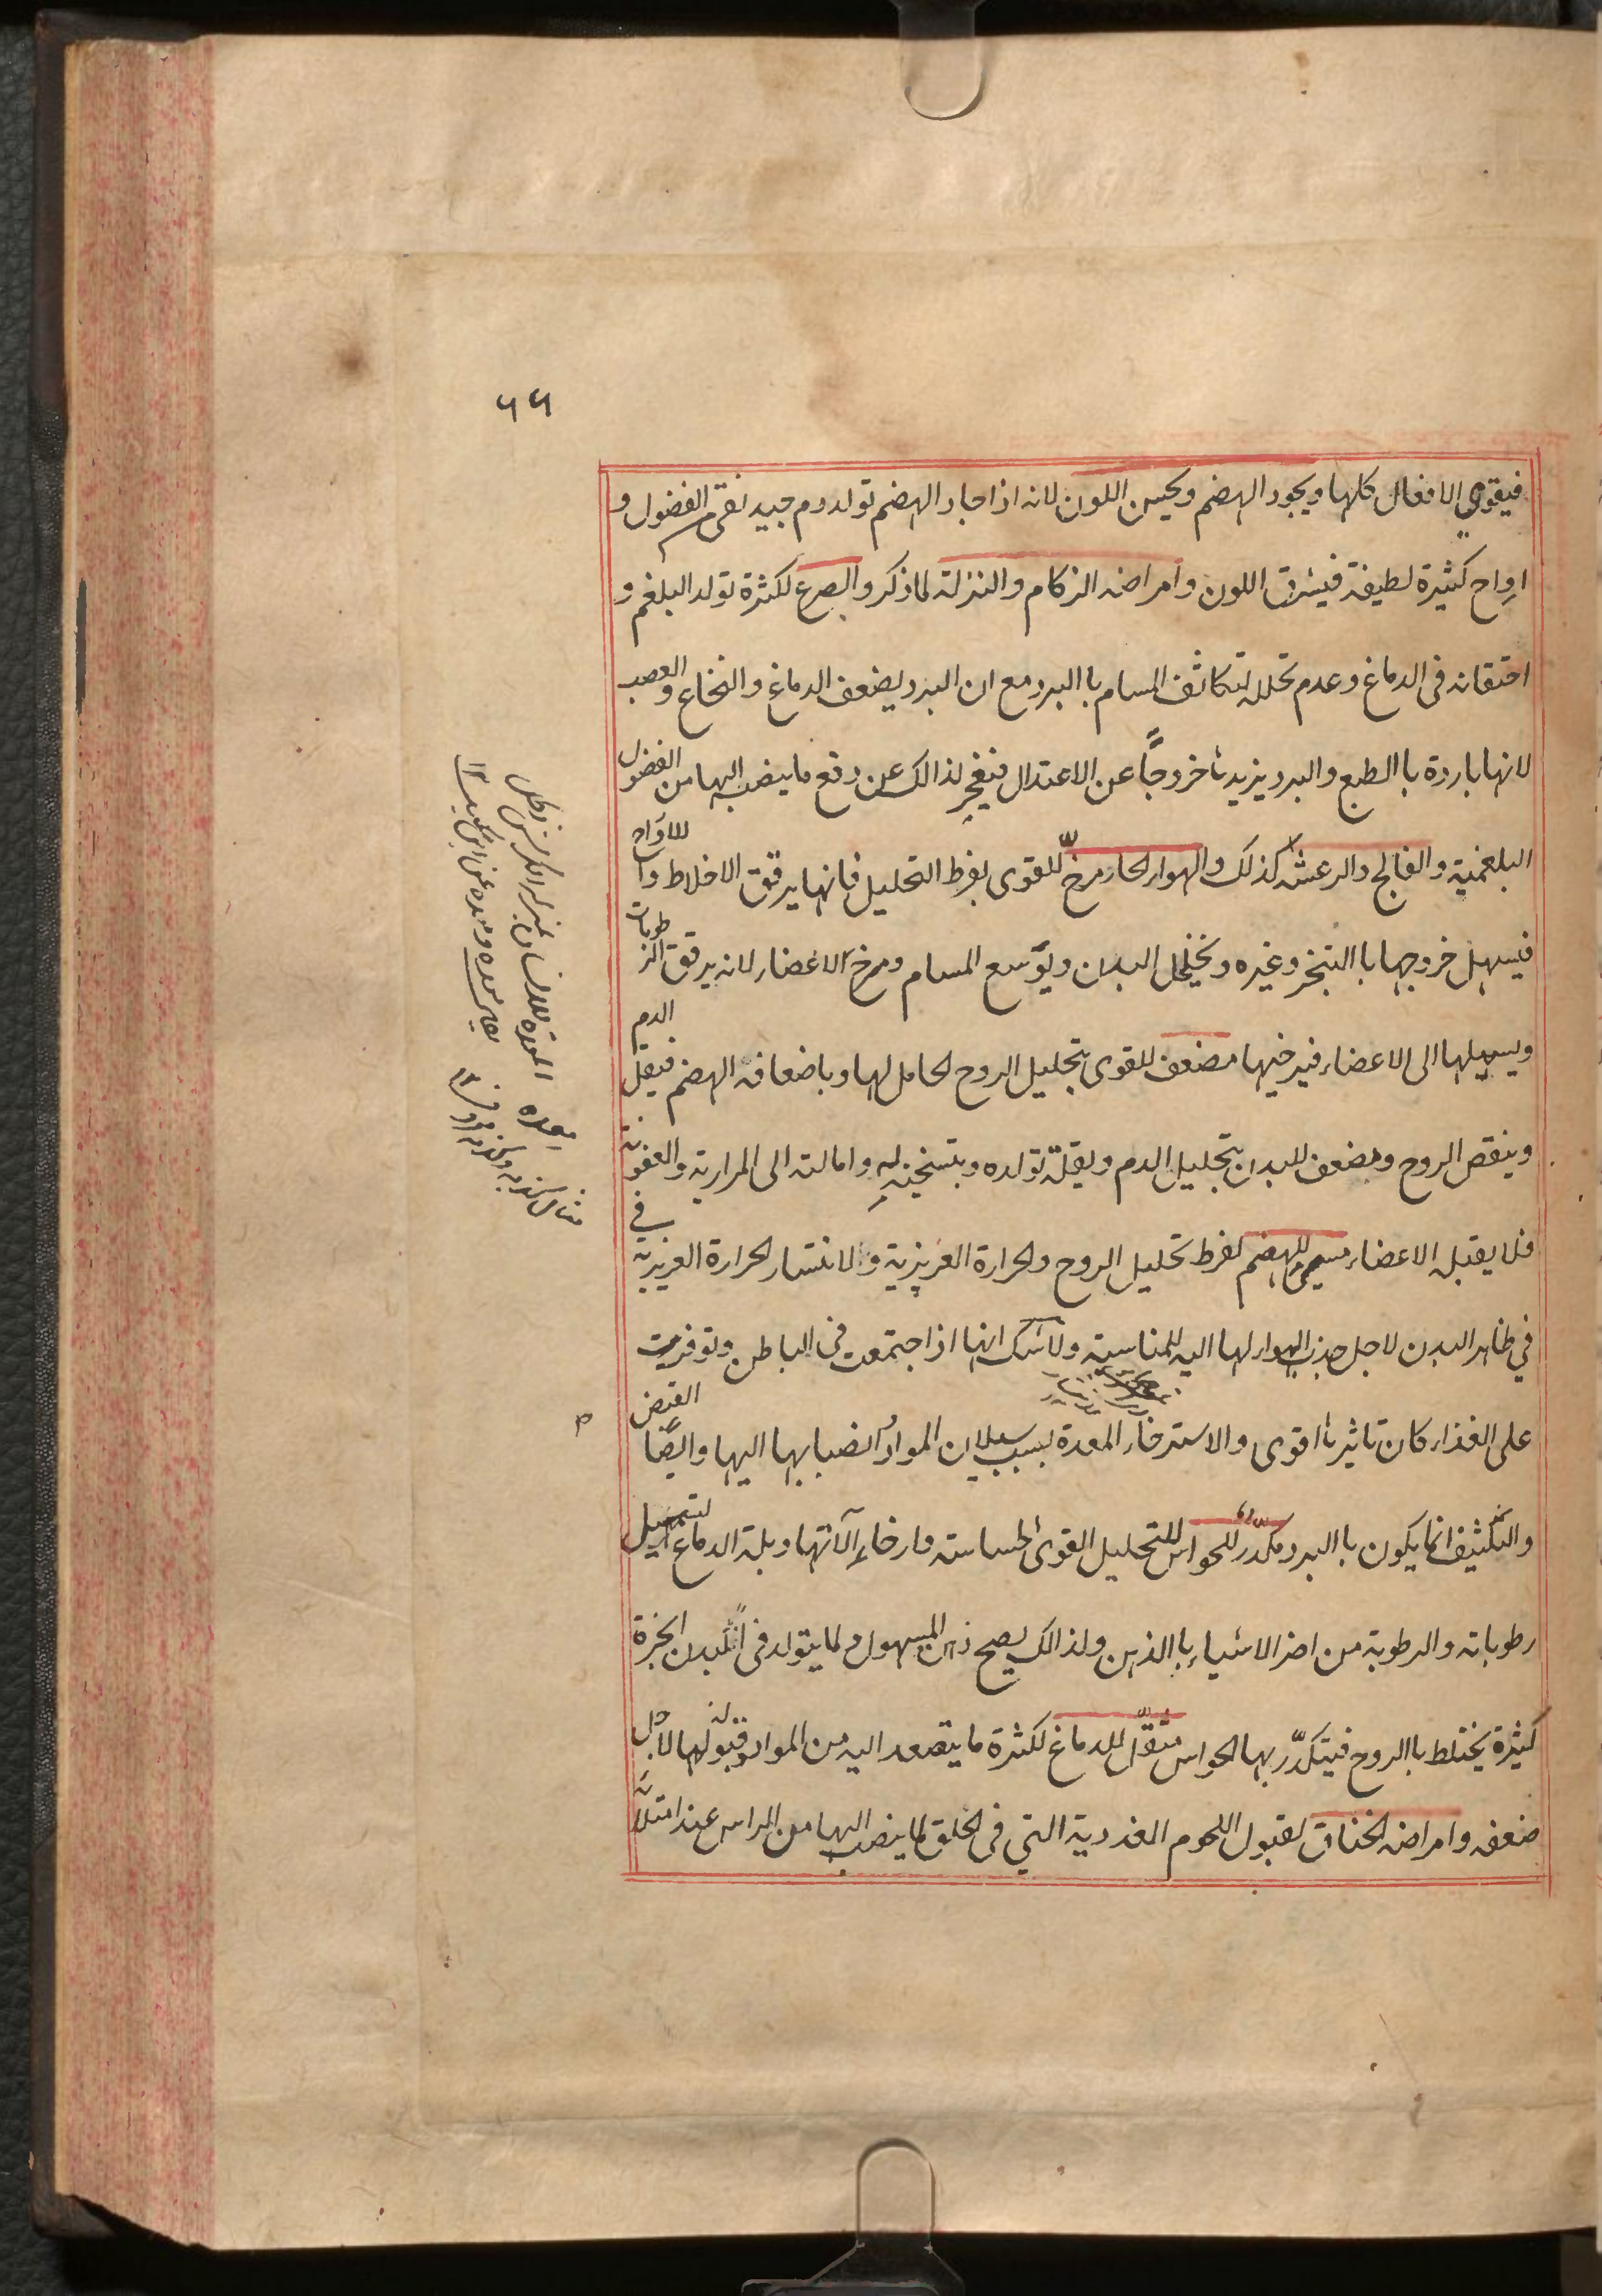 ٦٦
فيقوى الافعال كلها ويجود الهضم ويحسن اللون لانه اذا جاد الهضم تولد دم جيد نقى من الفضول و
ارواح كثيرة لطيفة فيشرق اللون وامراضه الزكام والنزلة لما ذكر والصرع لكثرة تولد البلغم و
احتقانه فى الدماغ وعدم تحلله لتكاثف المسام باالبرد مع ان البرد يضعف الدماغ والنخاع والعصب
لانها باردة باالطبع والبرد يزيدها خروجًا عن الاعتدال فيعجز لذالك عن دفع ما ينصب اليها من الفضول
البلغمية والفالج والرعشة كذلك والهواء الحار مرخّ للقوى بفرط التحليل فانها يرقق الاخلاط والارواح
فيسهل خروجها باالتبخر وغيره ويخلخل البدن ويوسع المسام ومرخ الاعضاء لانه يرقق الرطوبات
ويسيلها الى الاعضاء فيرخيها مضعف للقوى بتحليل الروح الحامل لها وباضعافه الهضم فيقل الدم
وينقص الروح ومضعف للبدن بتحليل الدم وبقلة تولده وبتسخينه له وامالته الى المرارية والعفونة
فلا يقبله الاعضاء مسئ للهضم لفرط تحليل الروح والحرارة الغريزية والانتشار الحرارة الغريزية فى
فى ظاهر البدن لاجل جذب الهواء لها اليه للمناسبة ولاشك انها اذا اجتمعت فى الباطن وتوفرت
على الغذاء كان تاثيرها اقوى والاسترخاء المعدة بسبب سيلان المواد وانصبابها اليها وايضًا القبض
والتكثيف انما يكون باالبرد مكدّر للحواس للتحليل القوى الحساسة وارخاء آلاتها وبلة الدماغ لتسييل
رطوباته والرطوبة من اضر الاشياء باالذهن ولذالك يصح ذهن المسهول ولما يتولد فى البدن ابخرة
كثيرة يختلط باالروح فيتكدّر بها الحواس مثقّل للدماغ لكثرة ما يتصعد اليه من المواد وقبوله لها لاجل
ضعفه وامراضه الخناق لقبول اللحوم الغددية التى فى الحلق لما ينصب اليها من الراس عند امتلائه
المعدة للانسان